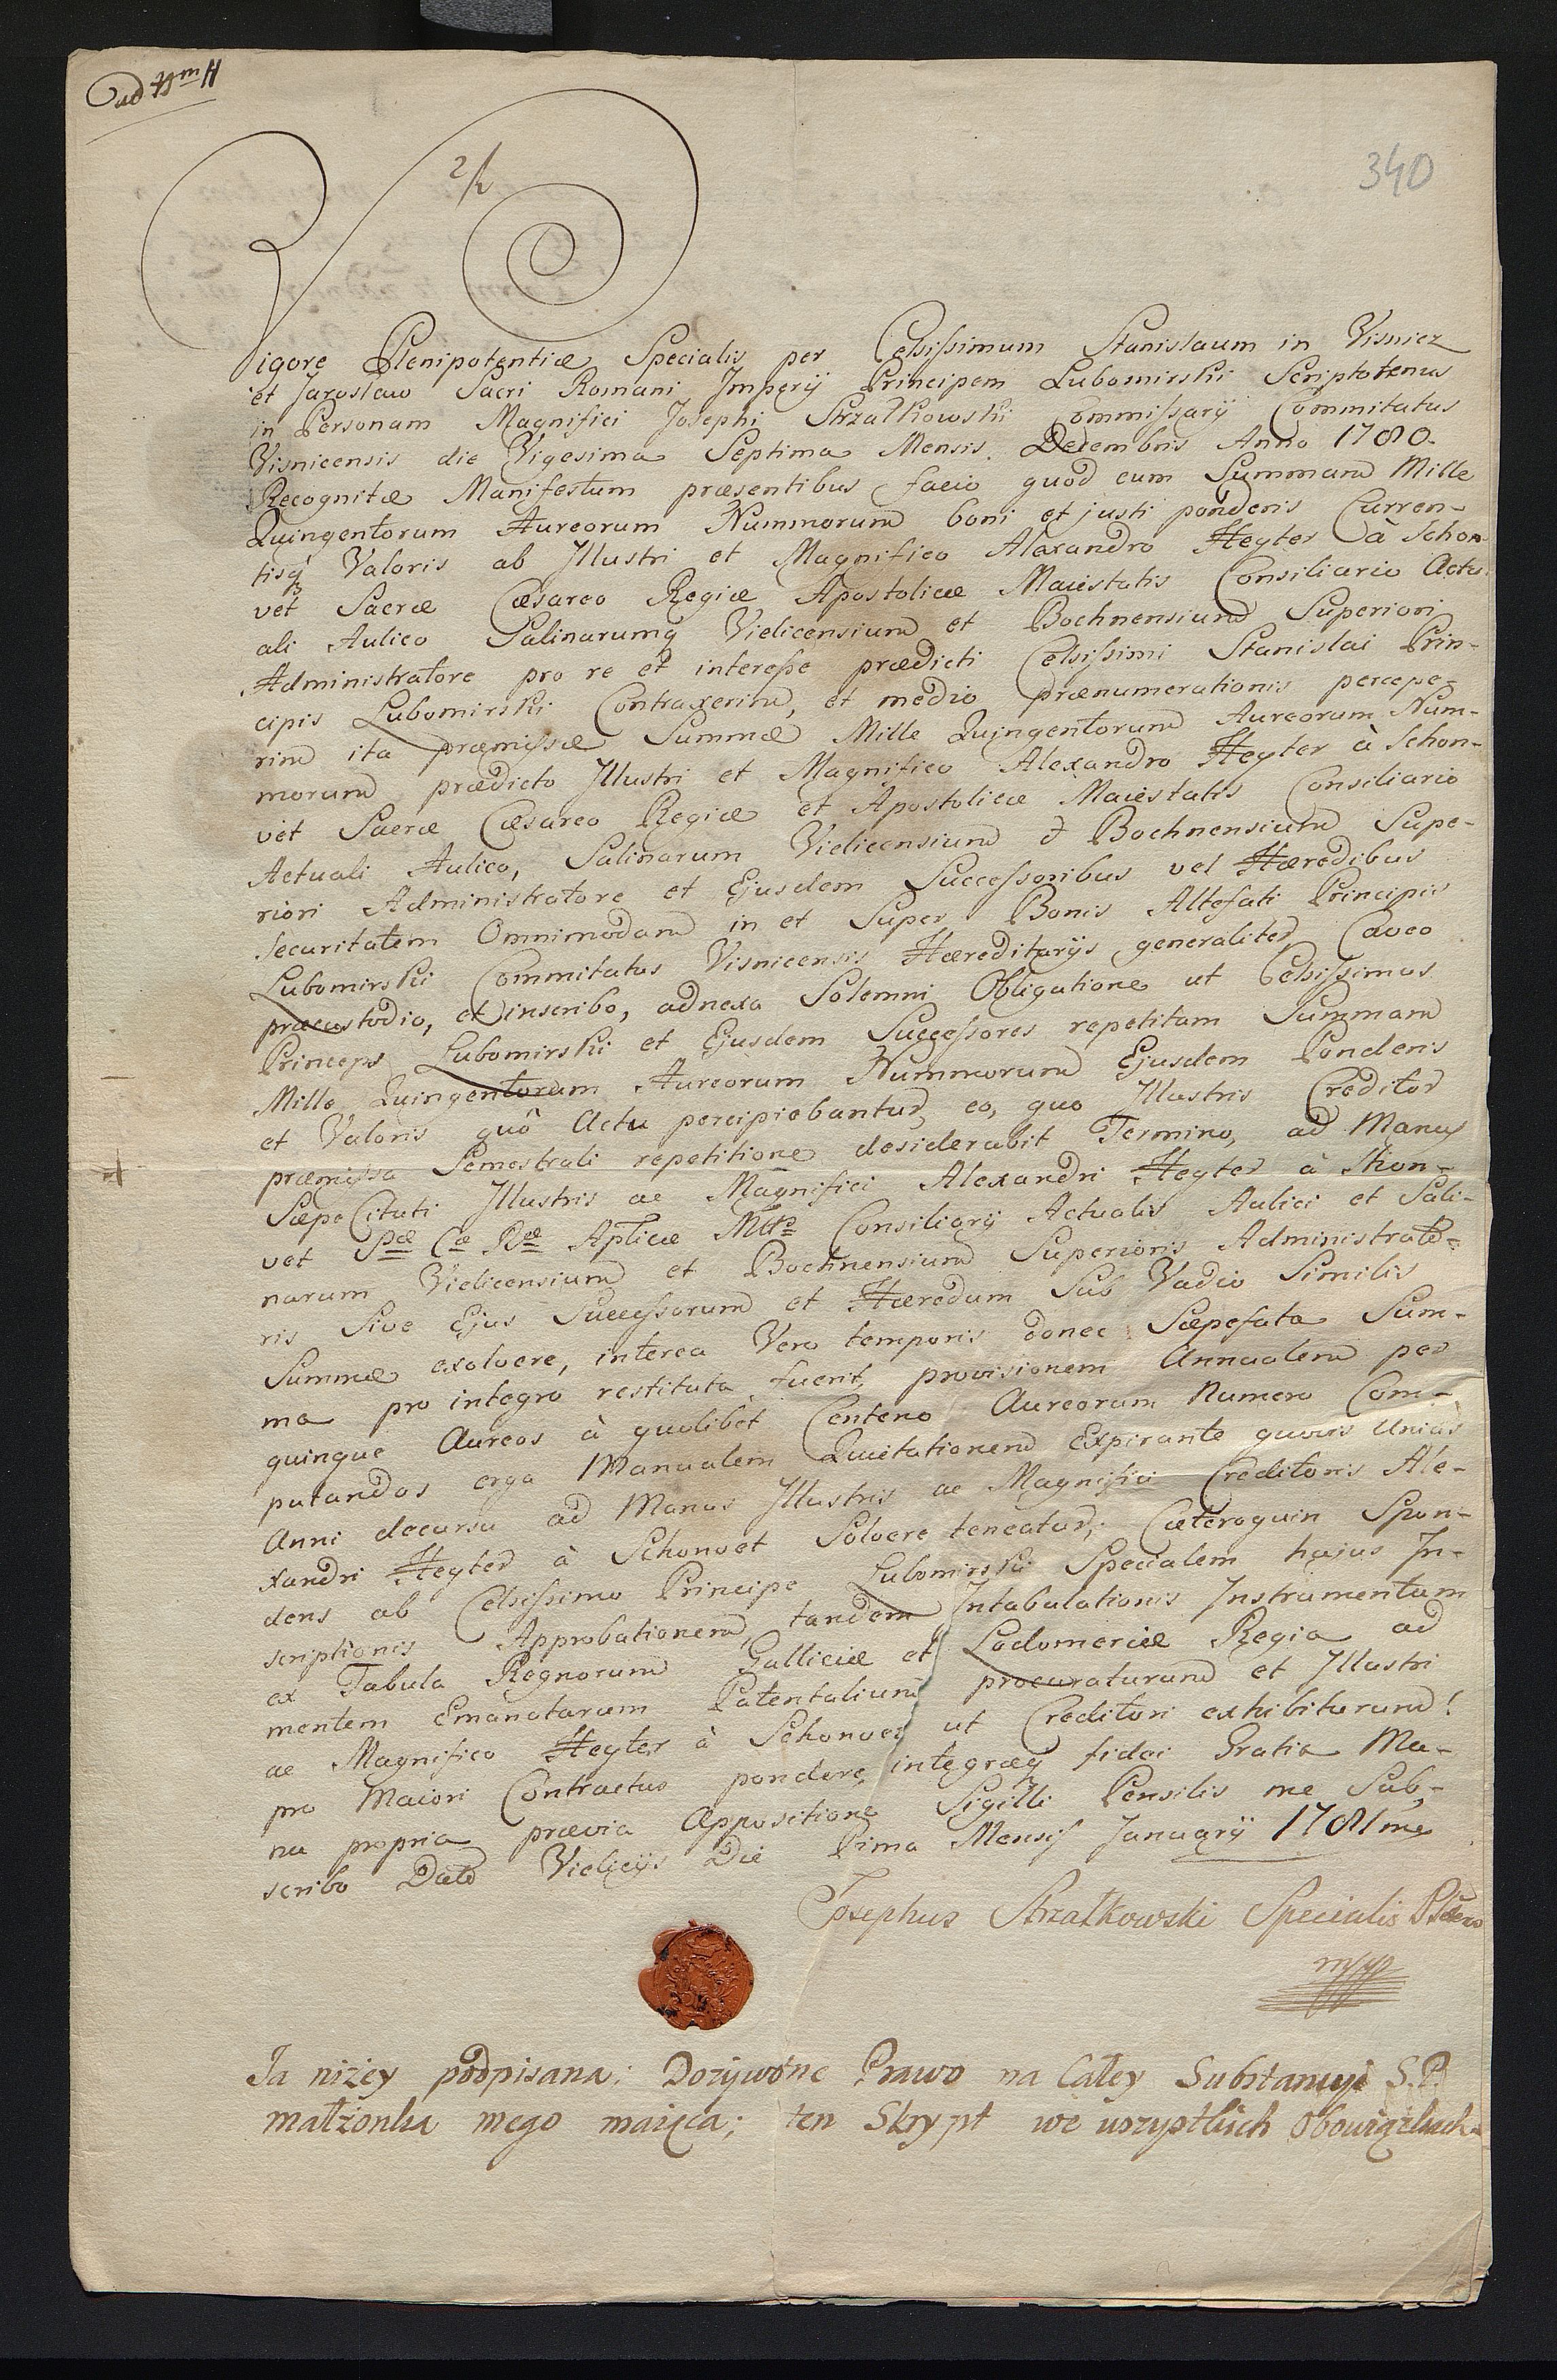 ad Nm H
340
Vigore Plenipotentiæ Specialis per Celsissimum Stanislaum in Visnicz
et Jaroslaw Sacri Romani Imperij Principem Lubomirski Scriptotenus
in Personam Magnifici Josephi Strzałkowski Commissarij Commitatus
Visnicensis die Vigesima Septima Mensis Decembris Anno 1780.
Recognitæ Manifestum præsentibus facio quod cum Summam Mille
Quingentorum Aureorum Nummorum boni et justi ponderis Curren-
tisq Valoris ab Illustri et Magnifico Alaxandro Heyter à Schon-
vet Sacræ Cæsareo Regiæ Apostolicæ Maiestatis Consiliario Actu-
ali Aulico Salinarumq Vielicensium et Bochnensium Superiori
Administratore pro re et interesse prædicti Celsissimi Stanislai Prin-
cipis Lubomirski Contraxerim, et medio prænumerationis percepe-
rim ita præmissæ Summæ Mille Quingentorum Aureorum Num-
morum prædicto Illustri et Magnifico Alexandro Heyter à Schon-
vet Sacræ Cæsareo Regiæ et Apostolicæ Maiestatis Consiliario
Actuali Aulico, Salinarum Vielicensium & Bochnensium Supe-
riori Administratore et Ejusdem Successoribus vel Hæredibus
securitatem Omnimodam in et Super Bonis Altefati Principis
Lubomirski Commitatus Visnicensis Hæreditarijs generaliter Caveo
præcustodio, et inscribo, adnexa Solemni Obligatione ut Celsissimus
Princeps Lubomirski et Ejusdem Successores repetitam Summam
Mille Quingentorum Aureorum Nummorum Ejusdem Ponderis
et Valoris quô Actu percipiebantur, eo, quo Illustris Creditor
præmissa Semestrali repetitione desiderabit Termino, ad Manus
Sæpe Citati Illustris ac Magnifici Alexandri Heyter à Shon-
vet Sæ Cæ Ræ Aplicæ Mttis Consiliarij Actualis Aulici et Sali-
narum Vielicensium et Bochnensium Superioris Administrato-
ris Sive Ejus Successorum et Hæredum Sub Vadio Similis
Summæ exolvere, interea Vero temporis donec Sæpefata Sum-
ma pro integro restituta fuerit, provisionem Annualem per
quinque Aureos à quolibet Centeno Aureorum Numero Com-
putandos erga Manualem Quietationem Expirante quovis Unius
Anni decursu ad Manus Illustris ac Magnifici Creditoris Ale-
xandri Heyter à Schonvet Solvere teneatur; Cæteroquin Spon-
dens ab Celsissimo Principe Lubomirski Specialem hujus In-
scriptionis Approbationem, tandem Intabulationis Instrumentum
ex Tabula Regnorum Galliciæ et Lodomeriæ Regia ad
mentem Emanatarum Patentalium procuraturum et Illustri
ac Magnifico Heyter à Schonvet ut Creditori exhibiturum!
pro Maiori Contractus pondere, integræq fidei Gratia Ma-
nu propria prævia Appositione Sigilli Pensilis me Sub-
scribo Dato Vielicijs Die Prima Mensis Januarij 1781mo
Josephus Strzałkowski Specialis
mpp
Ja niżey podpisana; Dozywotne Prawo na Całey Substancyi S.P.
małżonka mego maiąca; ten Skrypt we wszystkich Obowiązkach